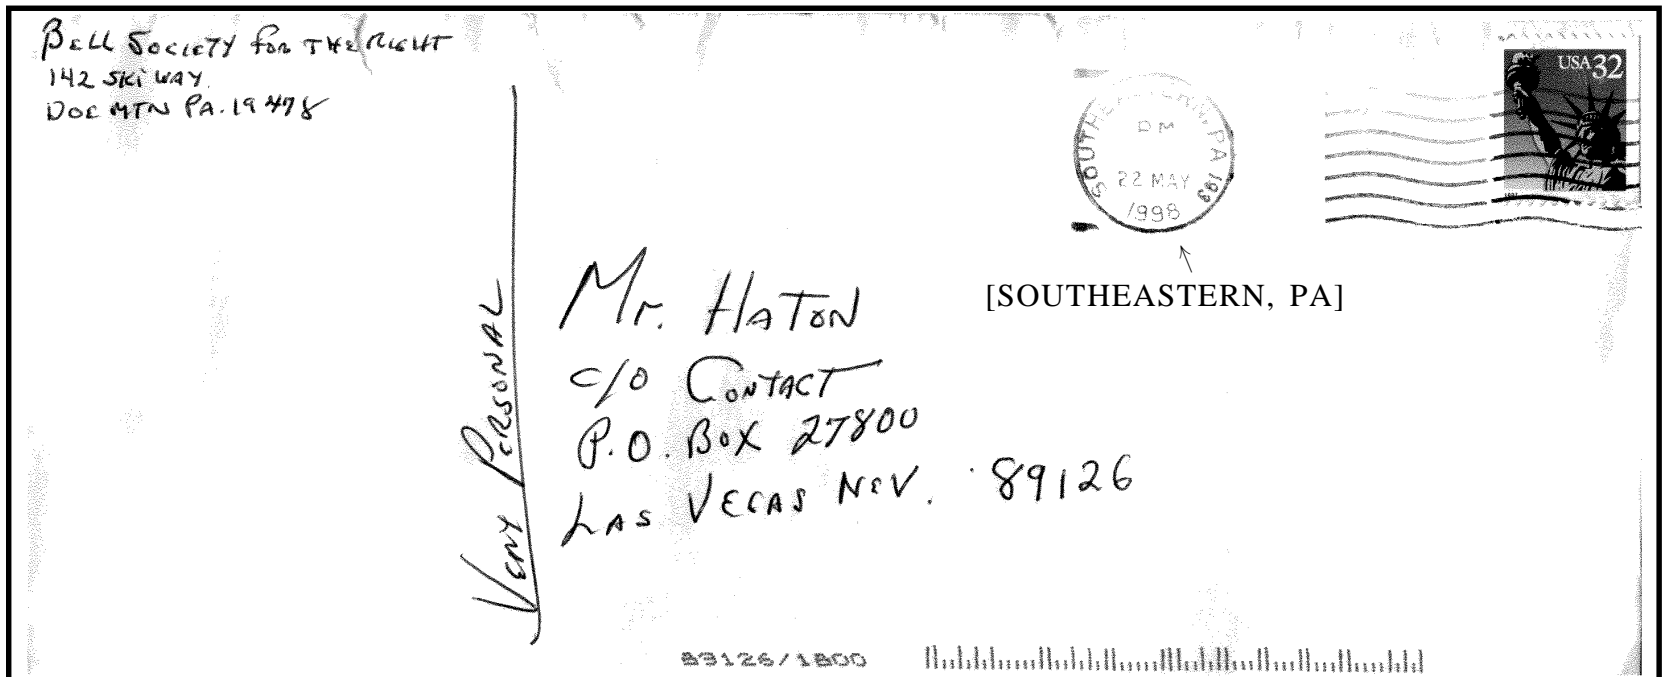 Bell Society for the Right
142 Ski Way
Doe Mtn PA. 19478
USA 32
SOUTHEASTERN, PA 193
PM
22 MAY
1998
[SOUTHEASTERN, PA]
Very Personal
Mr. Haton
c/o Contact
P.O. Box 27800
Las Vegas Nev. 89126
89126/1800